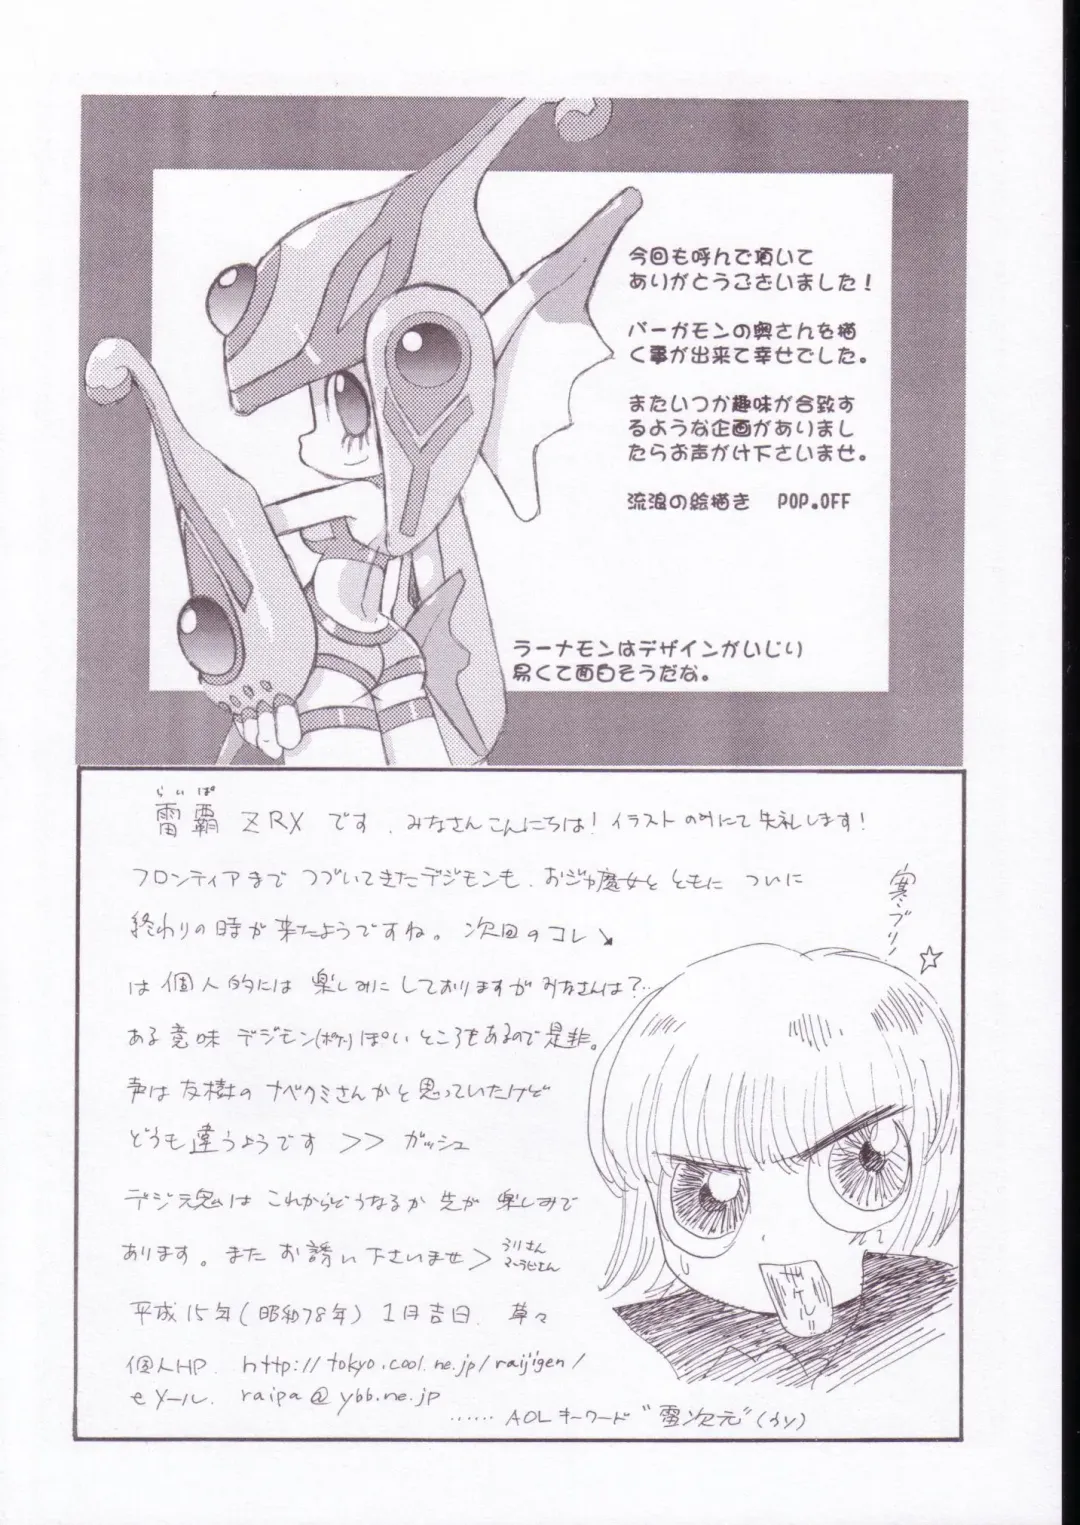 今回も呼んで頂いて
ありがとうございました！
バーガモンの奥さんを描
く事が出来て幸せでした。
またいつか趣味が合致す
るような企画がありまし
たらお声がけ下さいませ。
流浪の絵描き　POP.OFF
ラーナモンはデザインがいじり
易くて面白そうだな。
らいぱ
雷覇 ZRX です、みなさんこんにちは！イラストのみにて失礼します！
フロンティアまで つづいてきたデジモンも、おジャ魔女と ともに ついに
終わりの時が来たようですね。次回のコレ↘
は個人的には 楽しみに しておりますがみなさんは？…
ある意味 デジモン(ポケ)ぽい ところもあるので是非。
声は友樹の ナベクミさんかと思っていたけど
どうも違うようです >> ガッシュ
デジモン魂は これからどうなるか 先が 楽しみで
あります。また お誘い下さいませ>
寒ブリ！☆
平成15年(昭和78年) 1月吉日. 草々
個人HP. http://tokyo.cool.ne.jp/raijigen/
eメール. raipa@ybb.ne.jp
......AOLキーワード"雷次元"(うソ)